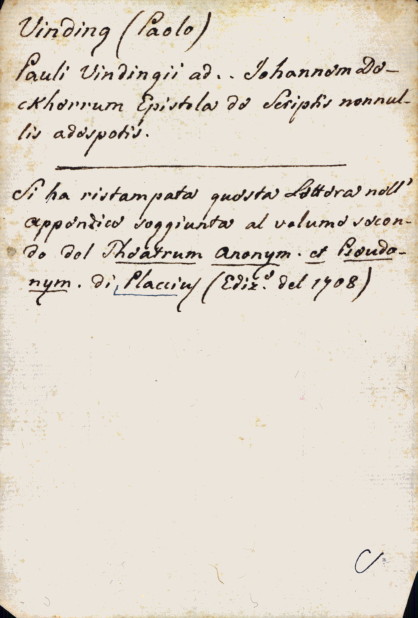 Vinding (Paolo)
Pauli Vindingii ad.. Johannem De-
ckherrum Epistola de Scriptis nonnul-
lis adespotis.
Si ha ristampata questa Lettera nell'
appendice soggiunta al volume secon-
do del Theatrum anonym. et Pseudo-
nym. di Placcius (Ediz.e del 1708)
C